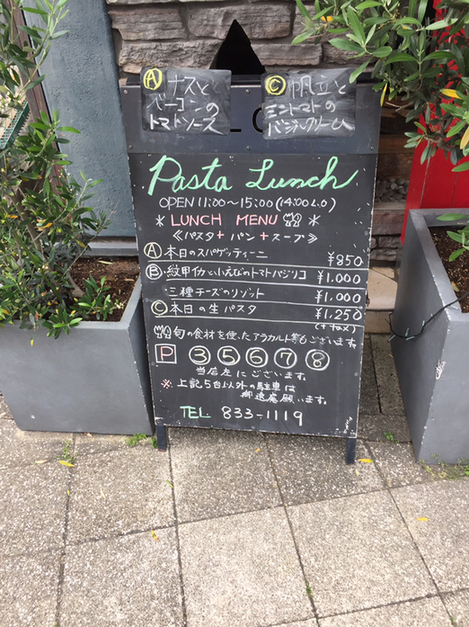 Ⓐナスと
ベーコンの
トマトソース
Ⓒ帆立と
ミニトマトの
バジルクリーム
Pasta Lunch
OPEN 11:00～15:00 (14:00 L.O)
＊ LUNCH MENU ＊
≪パスタ＋パン＋スープ≫
Ⓐ本日のスパゲッティーニ ¥950
Ⓑ紋甲イカといえびのトマトバジリコ ¥1,000
三種チーズのリゾット ¥1,000
Ⓒ本日の生パスタ ¥1,250
(+tax)
旬の食材を使ったアラカルト等もございます。
P ③⑤⑥⑦⑧
当店左にございます。
※上記5台以外の駐車は
御遠慮願います。
TEL 833-1119